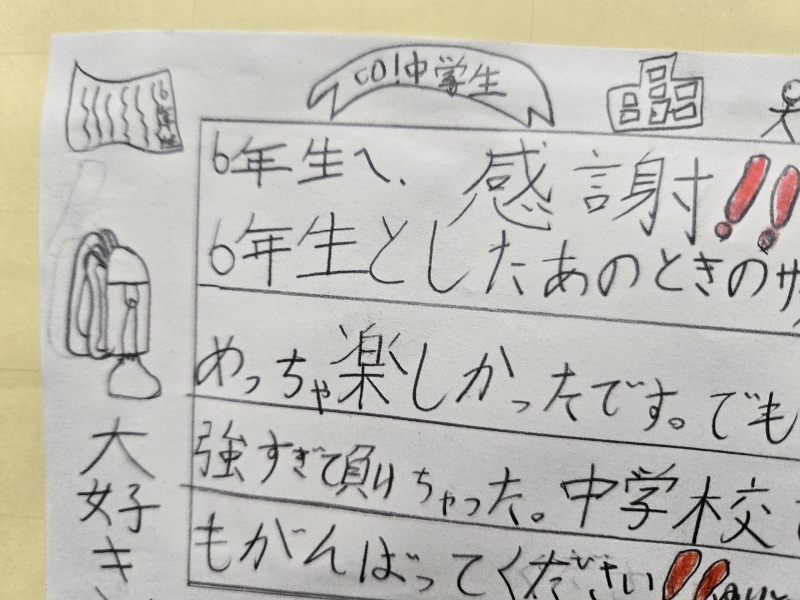 GO!中学生
6年生へ、感謝!!
6年生としたあのときのサ
めっちゃ楽しかったです。でも
強すぎて負けちゃった。中学校で
もがんばってください!!
6年生
大好き